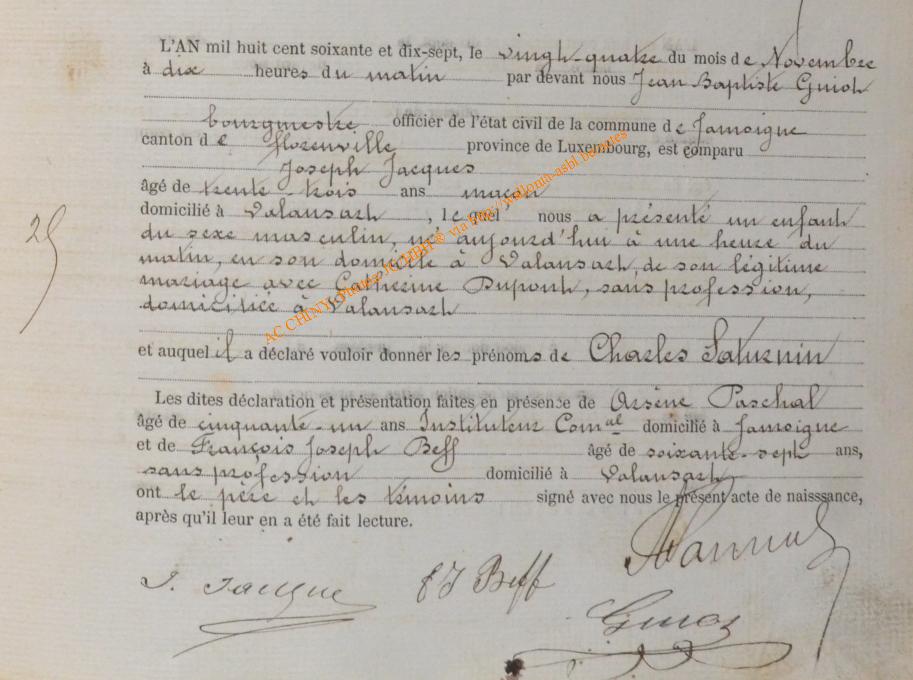 L'AN mil huit cent soixante et dix-sept, le vingt-quatre du mois de Novembre
à dix heures du matin par devant nous Jean Baptiste Guiot
bourgmestre officier de l'état civil de la commune de Jamoigne
canton de florenville province de Luxembourg, est comparu
Joseph Jacques
âgé de trente-trois ans maçon
domicilié à Valansart, lequel nous a présenté un enfant
du sexe masculin, né aujourd'hui à une heure du
matin, en son domicile à Valansart, de son légitime
mariage avec Catherine Dupont, sans profession,
domiciliée à Valansart
et auquel il a déclaré vouloir donner les prénoms de Charles Saturnin
Les dites déclaration et présentation faites en présence de Arsène Paschal
âgé de cinquante-un ans Instituteur Comal domicilié à Jamoigne
et de François Joseph Beff âgé de soixante-sept ans,
sans profession domicilié à Valansart
ont le père et les témoins signé avec nous le présent acte de naisssance,
après qu'il leur en a été fait lecture.
J. Jacque
FJ Beff
Guiot
AC CHINY